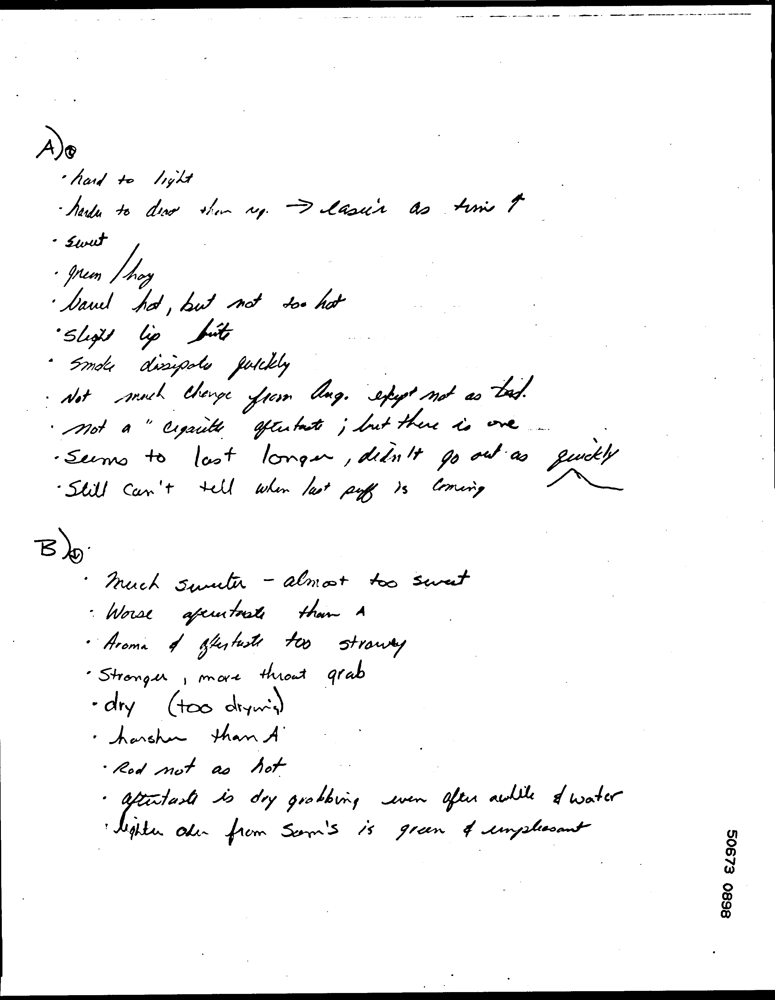 A)
· hard to light
· harder to draw than reg. → easier as time ↑
· sweet
· green / hay
· barrel hot, but not too hot
· slight lip bite
· smoke dissipates quickly
· Not much change from Aug. except not as bad.
· not a " cigarette aftertaste ; but there is one
· Seems to last longer, didn't go out as quickly
· Still can't tell when last puff is coming
B)
· Much sweeter - almost too sweet
· Worse aftertaste than A
· Aroma & aftertaste too strawy
· Stronger, more throat grab
· dry (too drying)
· harsher than A
· Rod not as hot
· aftertaste is dry grabbing even after awhile & water
· lighter odor from Sam's is green & unpleasant
50673 0898